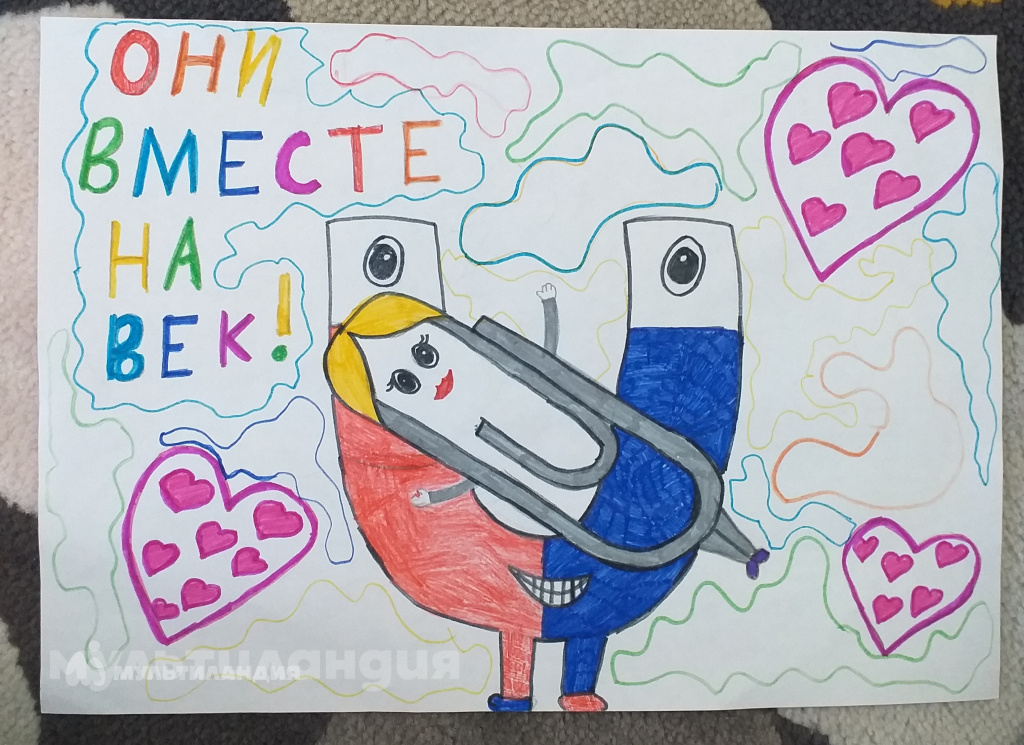 ОНИ
ВМЕСТЕ
НА
ВЕК!
мультиландия
МУЛЬТИЛАНДИЯ